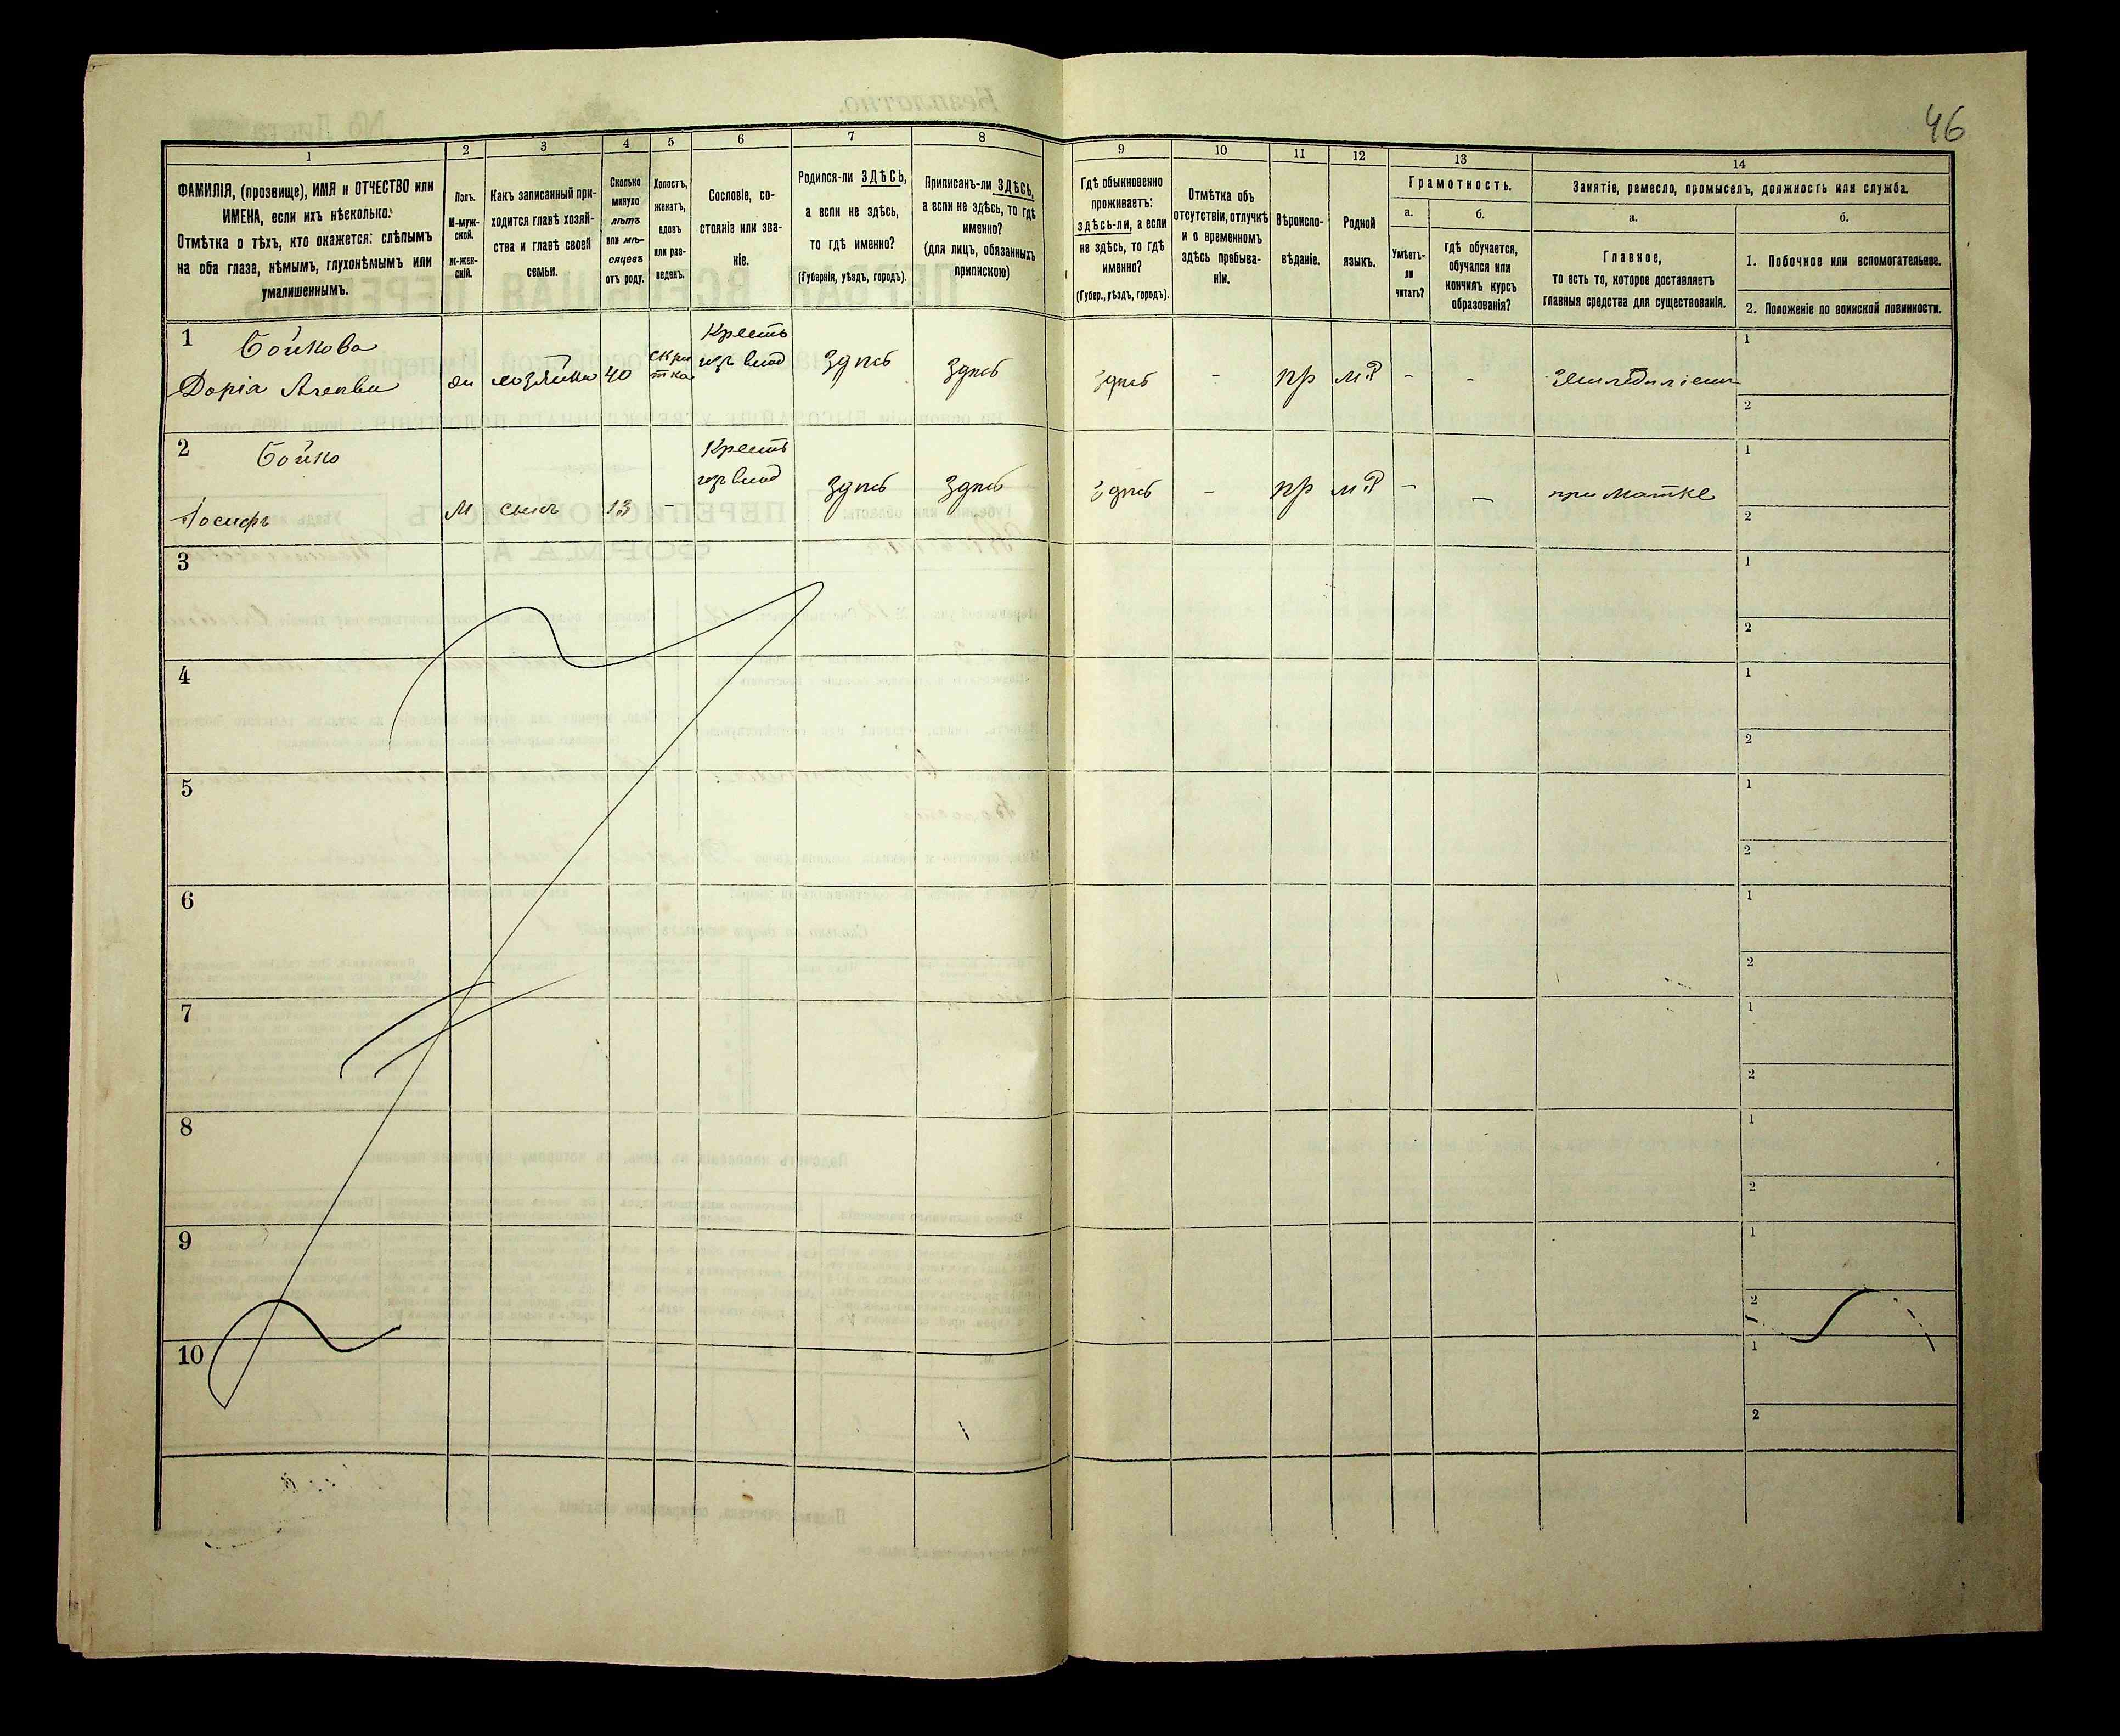 46
1
2
3
4
5
6
7
8
9
10
11
12
13
14
ФАМИЛІЯ, (прозвище), ИМЯ и ОТЧЕСТВО или
ИМЕНА, если ихъ нѣсколько.
Отмѣтка о тѣхъ, кто окажется: слѣпымъ
на оба глаза, нѣмымъ, глухонѣмымъ или
умалишеннымъ.
Полъ.
М-муж-
ской.
ж-жен-
скій.
Какъ записанный при-
ходится главѣ хозяй-
ства и главѣ своей
семьи.
Сколько
минуло
лѣтъ
или мѣ-
сяцевъ
отъ роду.
Холостъ,
женатъ,
вдовъ
или раз-
веденъ.
Сословіе, со-
стояніе или зва-
ніе.
Родился-ли ЗДѢСЬ,
а если не здѣсь,
то гдѣ именно?
(Губернія, уѣздъ, городъ).
Приписанъ-ли ЗДѢСЬ,
а если не здѣсь, то гдѣ
именно?
(для лицъ, обязанныхъ
припискою)
Гдѣ обыкновенно
проживаетъ:
здѣсь-ли, а если
не здѣсь, то гдѣ
именно?
(Губер., уѣздъ, городъ).
Отмѣтка объ
отсутствіи, отлучкѣ
и о временномъ
здѣсь пребыва-
ніи.
Вѣроиспо-
вѣданіе.
Родной
языкъ.
Грамотность.
а.
Умѣетъ-
ли
читать?
б.
гдѣ обучается,
обучался или
кончилъ курсъ
образованія?
Занятіе, ремесло, промыселъ, должность или служба.
а.
Главное,
то есть то, которое доставляетъ
главныя средства для существованія.
б.
1. Побочное или вспомогательное.
2. Положеніе по воинской повинности.
1
Бойкова
Дарія
хозяйка
40
Крестъ
здѣсь
здѣсь
здѣсь
-
пр
-
-
1
2
2
Бойко
Іосифъ
м
сынъ
13
-
Крестъ
здѣсь
здѣсь
здѣсь
-
пр
-
-
при маткѣ
1
2
3
1
2
4
1
2
5
1
2
6
1
2
7
1
2
8
1
2
9
1
2
10
1
2